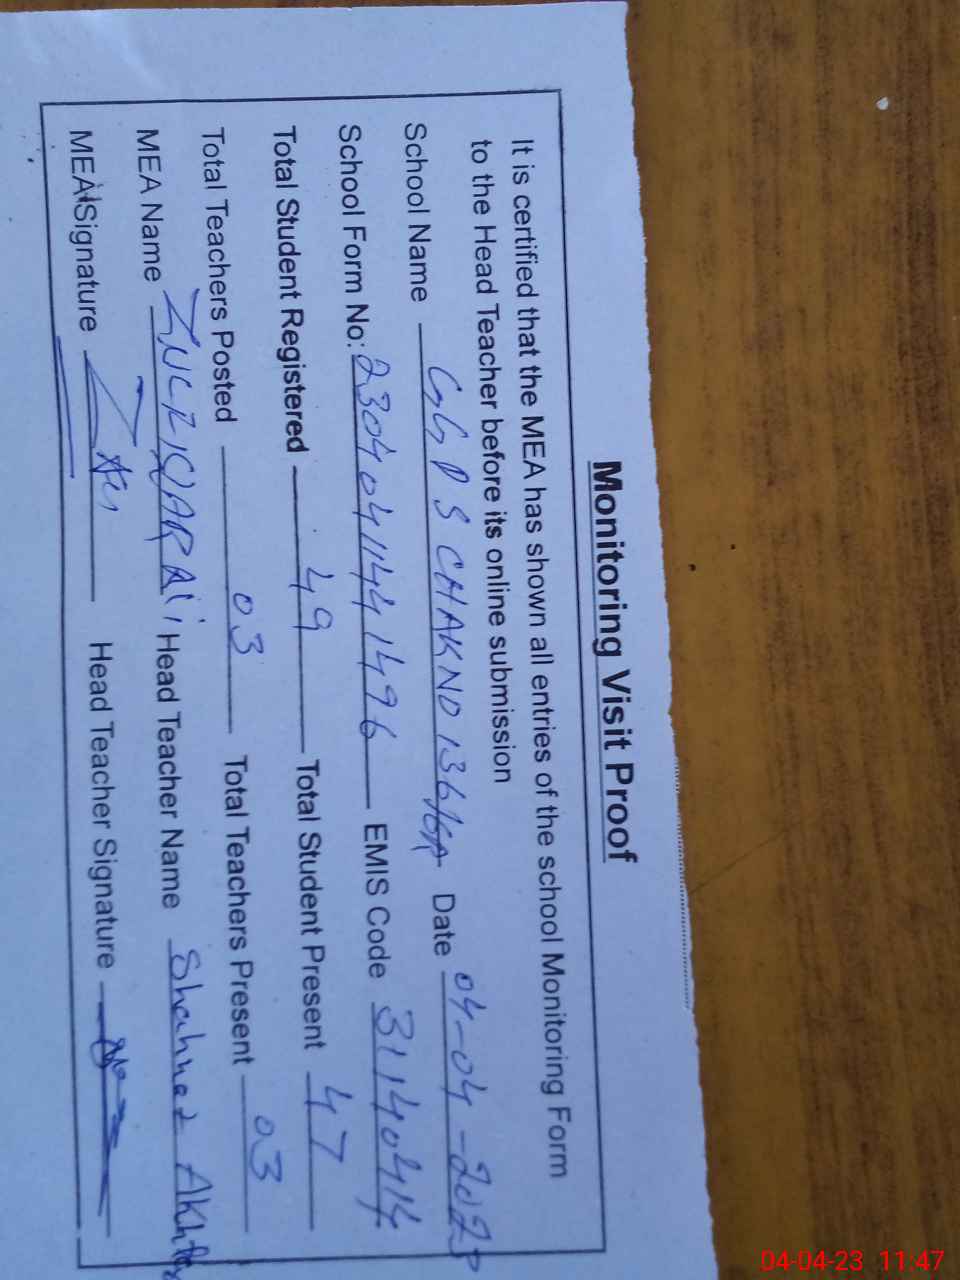 Monitoring Visit Proof
It is certified that the MEA has shown all entries of the school Monitoring Form
to the Head Teacher before its online submission
School Name GGPS CHAK NO 136/6R Date 04-04-2023
School Form No: 23040411441496 EMIS Code 31140414
Total Student Registered 49 Total Student Present 47
Total Teachers Posted 03 Total Teachers Present 03
MEA Name ZULFIQAR ALI Head Teacher Name Shahnaz Akhtar
MEA Signature Head Teacher Signature
04-04-23 11:47